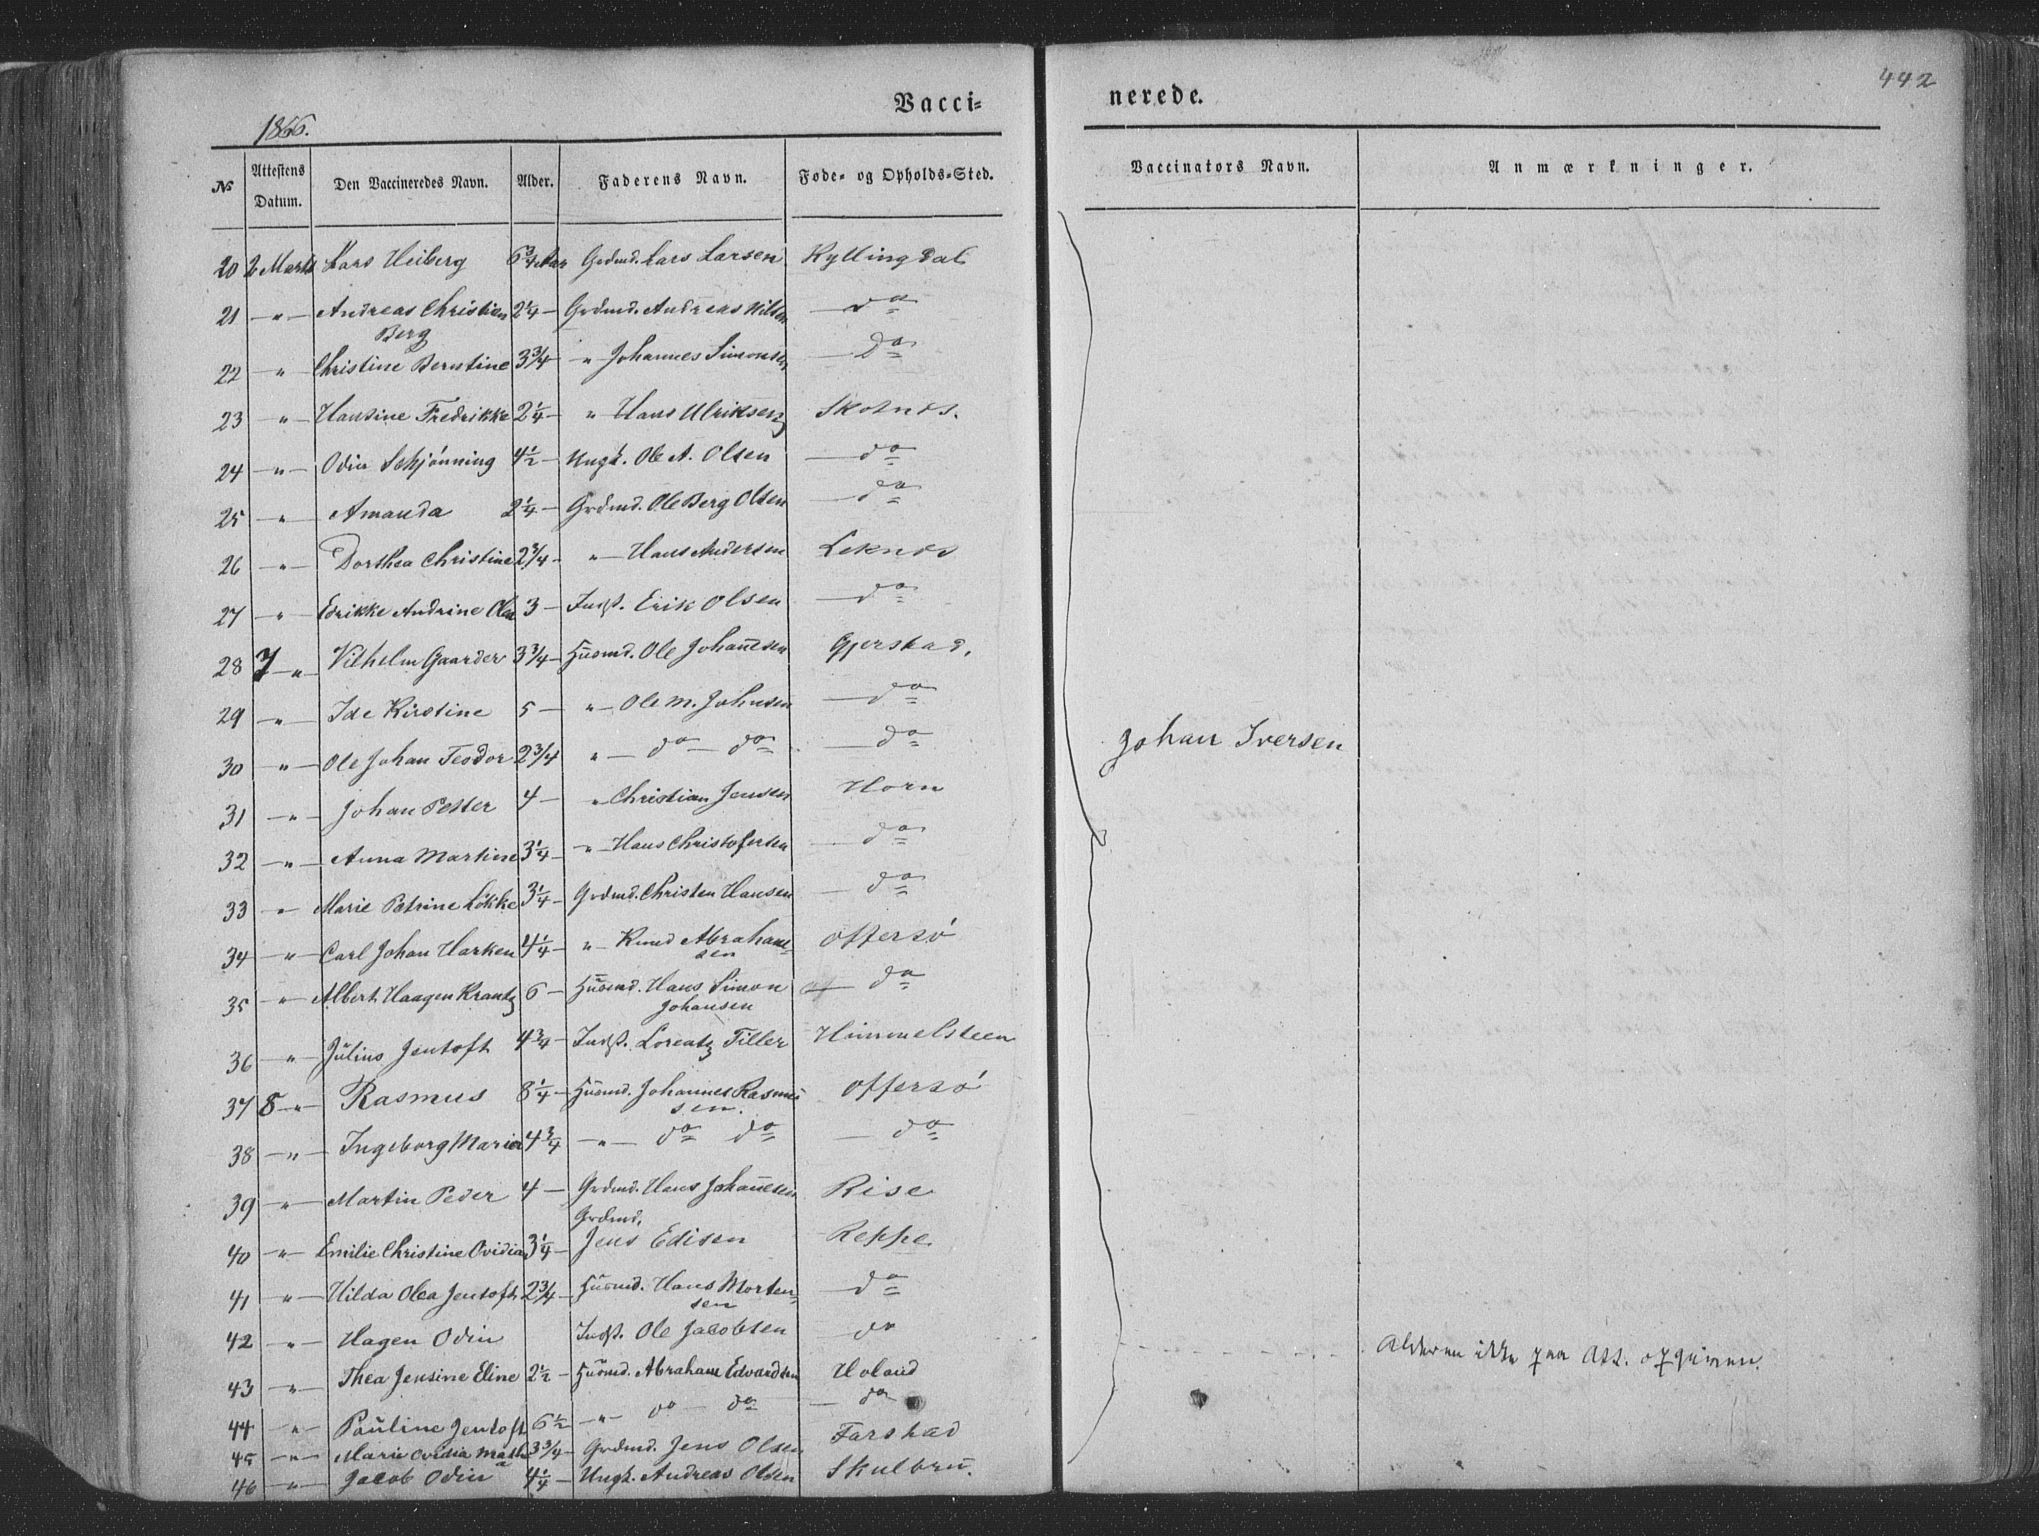 442
Vacci- nerede.
1866.
No Attestens Datum. Den Vaccineredes Navn. Alder. Faderens Navn. Føde- og Opholds-Sted. Vaccinators Navn. Anmærkninger.
20 2 Marts Lars Heiberg 6 3/4 Aar Grdmd. Lars Larsen Kyllingdal
21 —„— Andreas Christian 2 1/4 — Grdmd. Andreas Nilsen — do
Berg
22 —„ Christine Berntine 3 3/4 „ Johannes Simonsen — do
23 —„— Hansine Fredrikke 2 1/4 — „ Hans Ulriksen Skotnes.
24 —„— Odin Schjønning 4 1/2 — Ungk. Ole A. Olsen — do
25 —„ Amanda 2 1/4 — Grdmd. Ole Berg Olsen — do
26 —„— Dorthea Christine 2 3/4 - „— Hans Andersen Leknes
27 —„ Edrikke Andrine Olea 3 — Indst. Erik Olsen — do
28 7 —„— Vilhelm Gaarder 3 3/4 — Husmd. Ole Johannesen Gjerstad.
29 —„— Ide Kirstine 5 — „— Ole M. Johnsen — do
30 —„— Ole Johan Teodor 2 3/4 „— do — do — do
31 —„— Johan Petter 4 — „ Christian Jensen Horn
Johan Iversen
32 —„— Anna Martine 3 1/4 — „— Hans Christofersen — do
33 —„— Marie Petrine Løkke 3 1/4 — Grdmd. Christen Hansen — do
34 —„— Carl Johan Harken 4 1/4 — „— Knud Abraham- Offersø
sen
35 —„ Albert Haagen Krantz 6 — Husmd. Hans Simon — do
Johansen
36 —„ Julius Jentoft 4 3/4 — Indst. Lorentz Tiller Himmelsteen
37 8 —„— Rasmus 8 1/4 — Husmd. Johannes Rasmus Offersø
sen.
38 —„— Ingeborg Maria 4 3/4 —„— do do — do
39 —„— Martin Peder 4 — Grdmd. Hans Johannesen Rise
Grdmd.
40 —„— Emilie Christine Ovidia 3 1/4 — Jens Edisen Reppe
41 —„— Hilda Olea Jentoft 2 3/4 Husmd. Hans Morten- — do
sen
42 —„— Hagen Odin Indst. Ole Jacobsen do Alderen ikke paa Att. opgiven.
43 —„— Thea Jensine Eline 2 1/2 — Husmd. Abraham Edvardsen Holand
44 —„— Pauline Jentoft 6 1/2 —„— do — do — do
45 —„— Marie Ovidia Math 3 3/4 — Grdmd. Jens Olsen Farstad
a
46 —„— Jacob Odin 4 1/4 — Ungk. Andreas Olsen Skulbru.